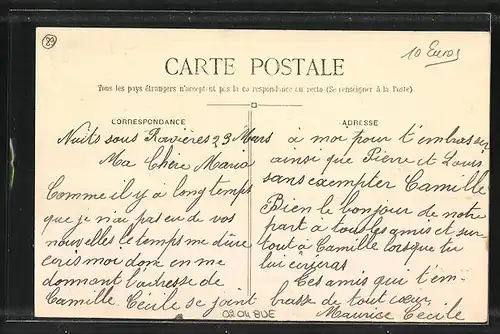 89
10 Euros
CARTE POSTALE
Tous les pays étrangers n'acceptent pas la correspondance au recto (Se renseigner à la Poste)
CORRESPONDANCE
Nuits sous Ravières 23 Mars
Ma Chère Maria
Comme il y à longtemps
que je n'ai pas eu de vos
nouvelles le temps me dure
ecris moi donc en me
donnant l'adresse de
Camille Cécile se joint
ADRESSE
à moi pour t'embrasser
ainsi que Pierre et Louis
sans exempter Camille
Bien le bonjour de notre
part à tous les amis et sur
tout à Camille lorsque tu
lui écriras
Tes amis qui t'em-
brasse de tout cœur
Maurice Cecile
0204 BUE